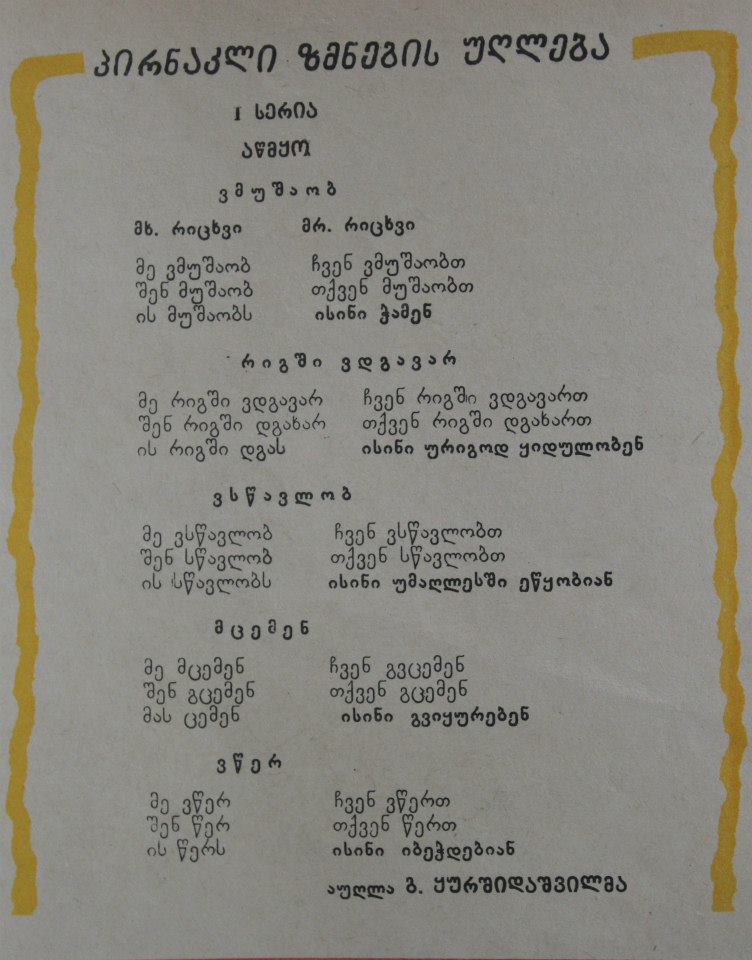 პირნაკლი ზმნების უღლება
I სერია
აწმყო
ვმუშაობ
მხ. რიცხვი მრ. რიცხვი
მე ვმუშაობ ჩვენ ვმუშაობთ
შენ მუშაობ თქვენ მუშაობთ
ის მუშაობს ისინი ჭამენ
რიგში ვდგავარ
მე რიგში ვდგავარ ჩვენ რიგში ვდგავართ
შენ რიგში დგახარ თქვენ რიგში დგახართ
ის რიგში დგას ისინი ურიგოდ ყიდულობენ
ვსწავლობ
მე ვსწავლობ ჩვენ ვსწავლობთ
შენ სწავლობ თქვენ სწავლობთ
ის სწავლობს ისინი უმაღლესში ეწყობიან
მცემენ
მე მცემენ ჩვენ გვცემენ
შენ გცემენ თქვენ გცემენ
მას ცემენ ისინი გვიყურებენ
ვწერ
მე ვწერ ჩვენ ვწერთ
შენ წერ თქვენ წერთ
ის წერს ისინი იბეჭდებიან
აუღლა გ. ყურშიდაშვილმა